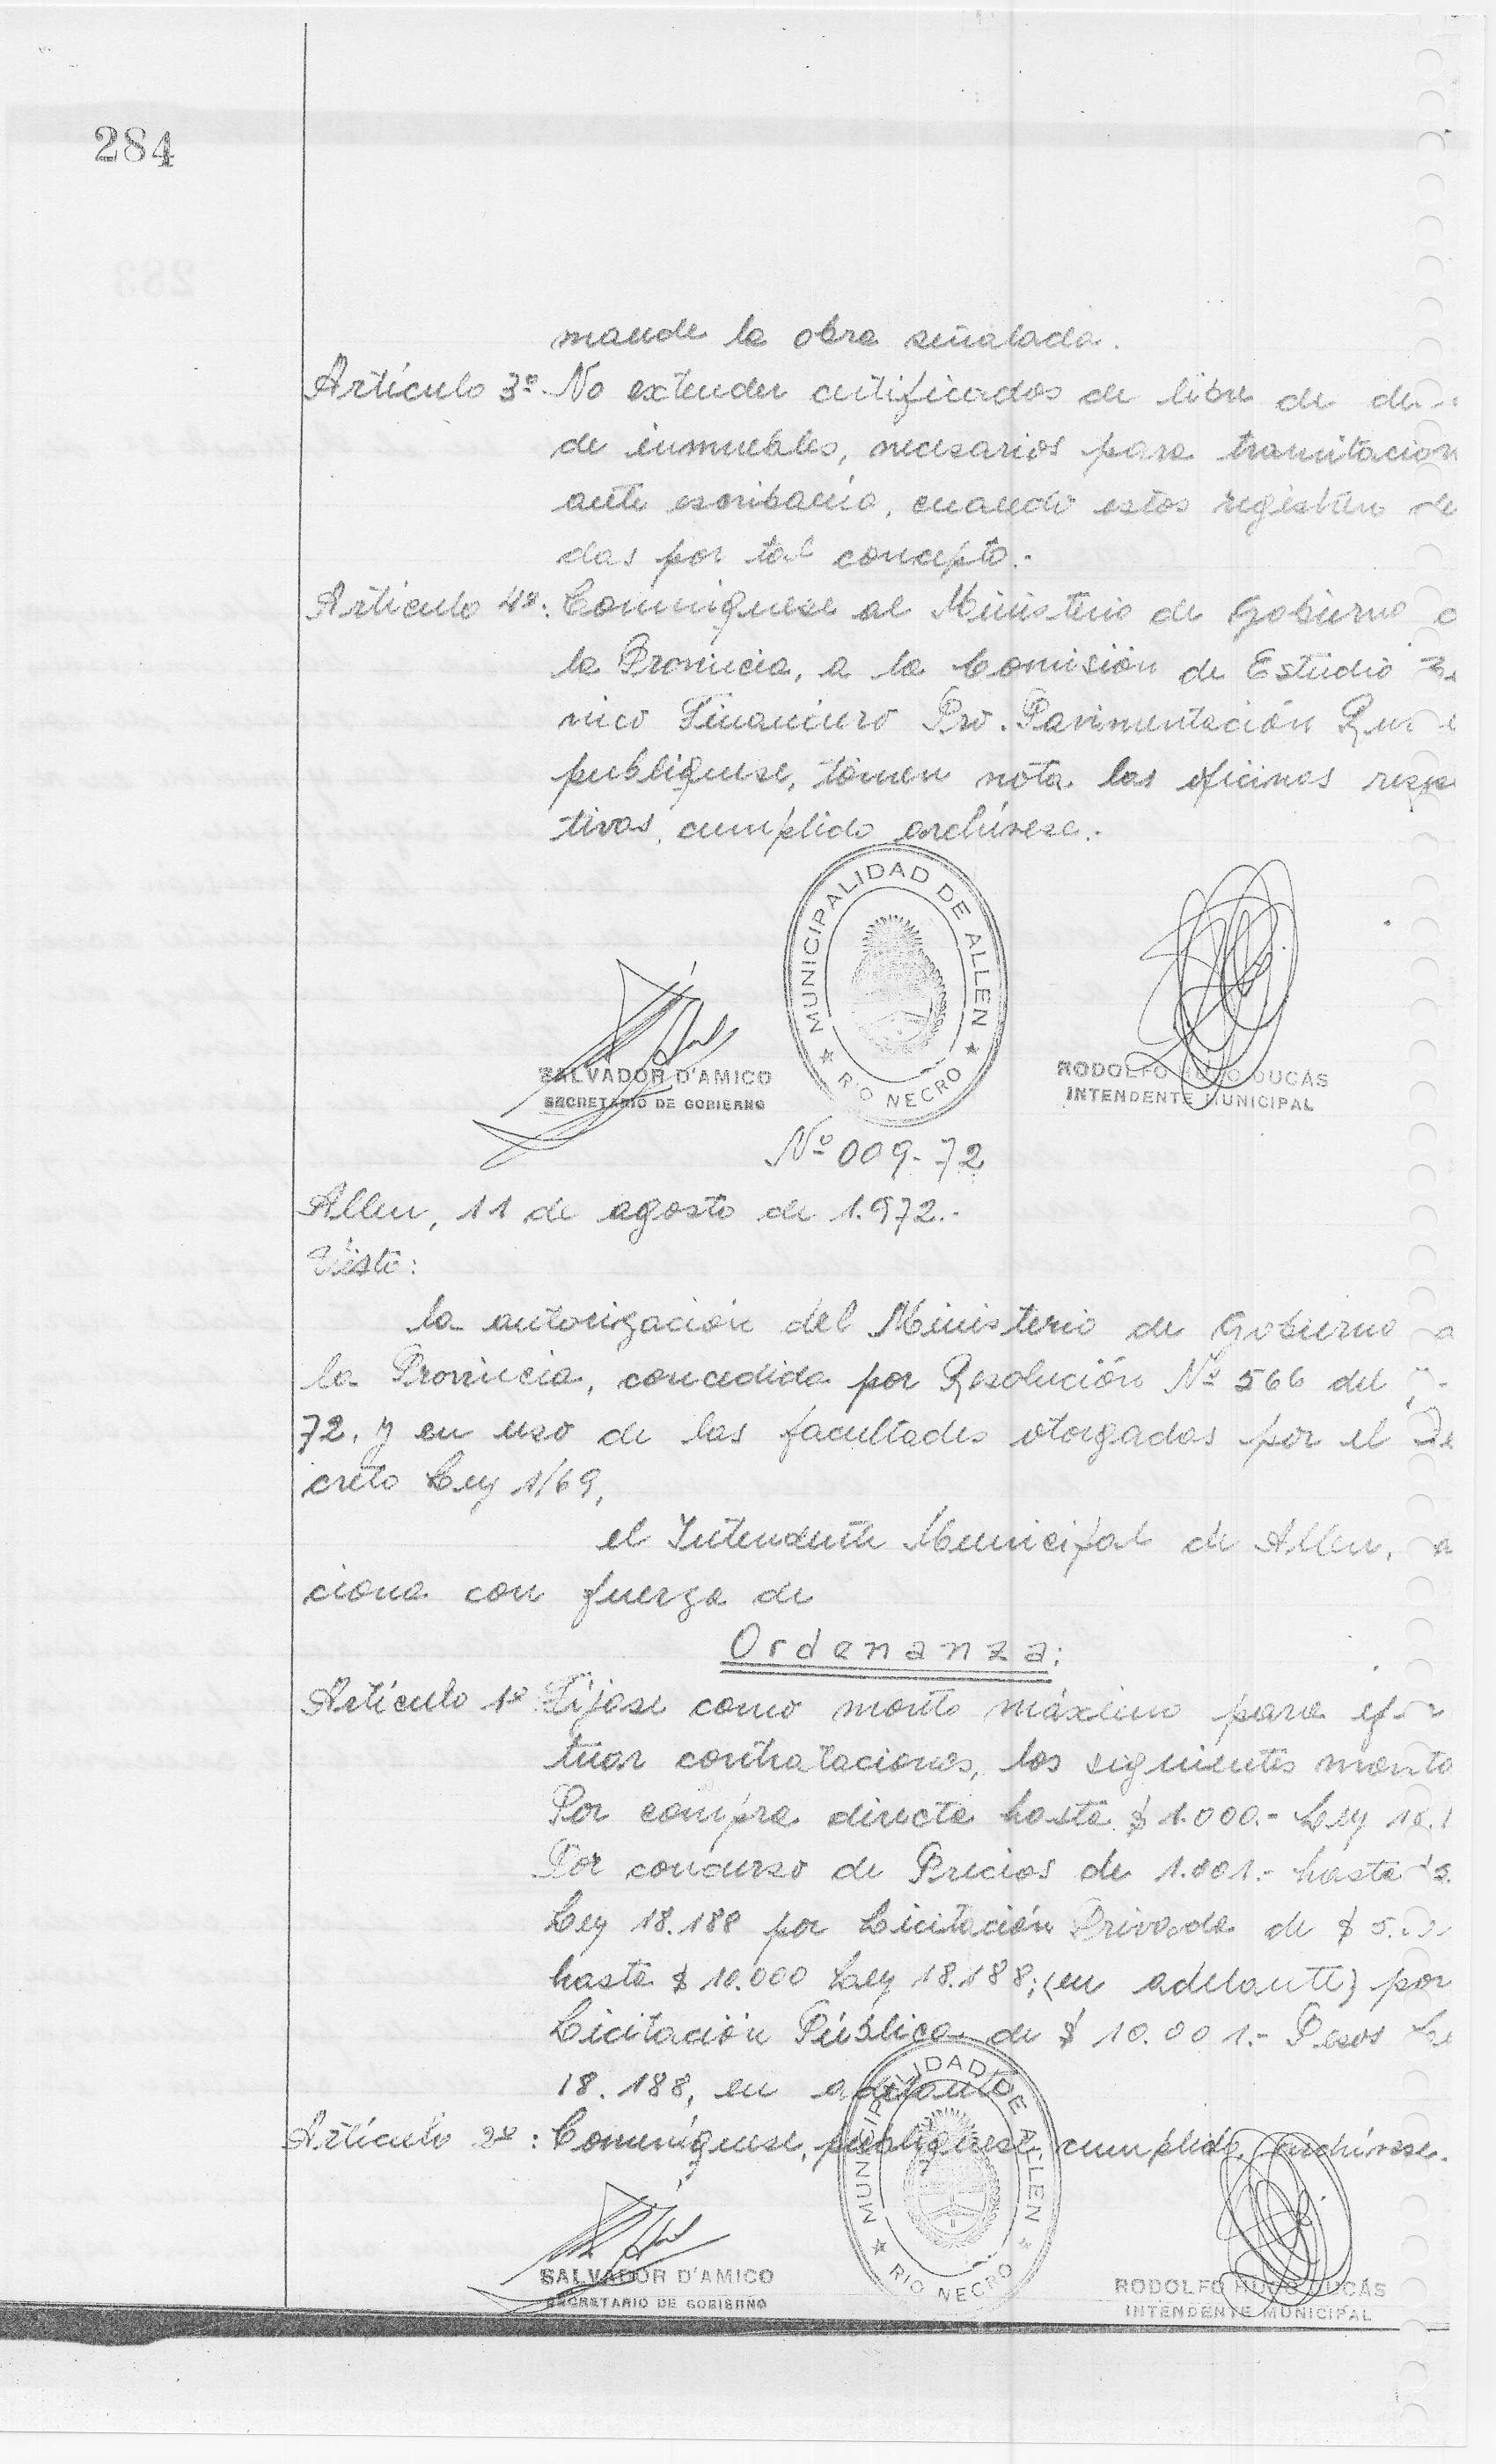 284
mande la obra señalada.
Artículo 3º. No extender certificados de libre de
de inmuebles, necesarios para tramitacion
ante escribanía, cuando estos registren de
das por tal concepto.-
Artículo 4º: Comuníquese al Ministerio de Gobierno
la Provincia, a la Comisión de Estudio
nico Financiero Pro-Pavimentación
publíquese, tomen nota las oficinas respec
tivas, cumplido archívese.-
MUNICIPALIDAD DE ALLEN
RIO NECRO
SALVADOR D'AMICO
SECRETARIO DE GOBIERNO
RODOLFO HUGO DUCÁS
INTENDENTE MUNICIPAL
Nº 009-72
Allen, 11 de agosto de 1.972.-
Visto:
la autorización del Ministerio de Gobierno
la Provincia, concedida por Resolución Nº 566 del
72. y en uso de las facultades otorgadas por el De
creto Ley 1/69,
el Intendente Municipal de Allen,
ciona con fuerza de
Ordenanza:
Artículo 1º Fíjase como monto máximo para
tuar contrataciones, los siguientes monto
Por compra directa hasta $ 1.000.- Ley
Por concurso de Precios de 1.001.- hasta
Ley 18.188 por Licitación Privada de $
hasta $ 10.000 Ley 18.188; (en adelante) por
Licitación Pública de $ 10.001.- Pesos
18.188, en adelante
Artículo 2º: Comuníquese, publíquese cumplido archívese.
MUNICIPALIDAD DE ALLEN
RIO NECRO
SALVADOR D'AMICO
SECRETARIO DE GOBIERNO
RODOLFO HUGO DUCÁS
INTENDENTE MUNICIPAL